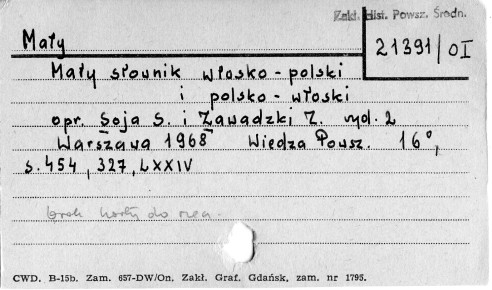 Zakł. Hist. Powsz. Średn.
Mały
21391/OI
Mały słownik włosko-polski
i polsko-włoski
opr. Soja S. i Zawadzki Z. wyd. 2
Warszawa 1968 Wiedza Powsz. 16°,
s. 454, 327, LXXIV
brak karty do rew.
CWD. B-15b. Zam. 657-DW/On. Zakł. Graf. Gdańsk, zam. nr 1795.